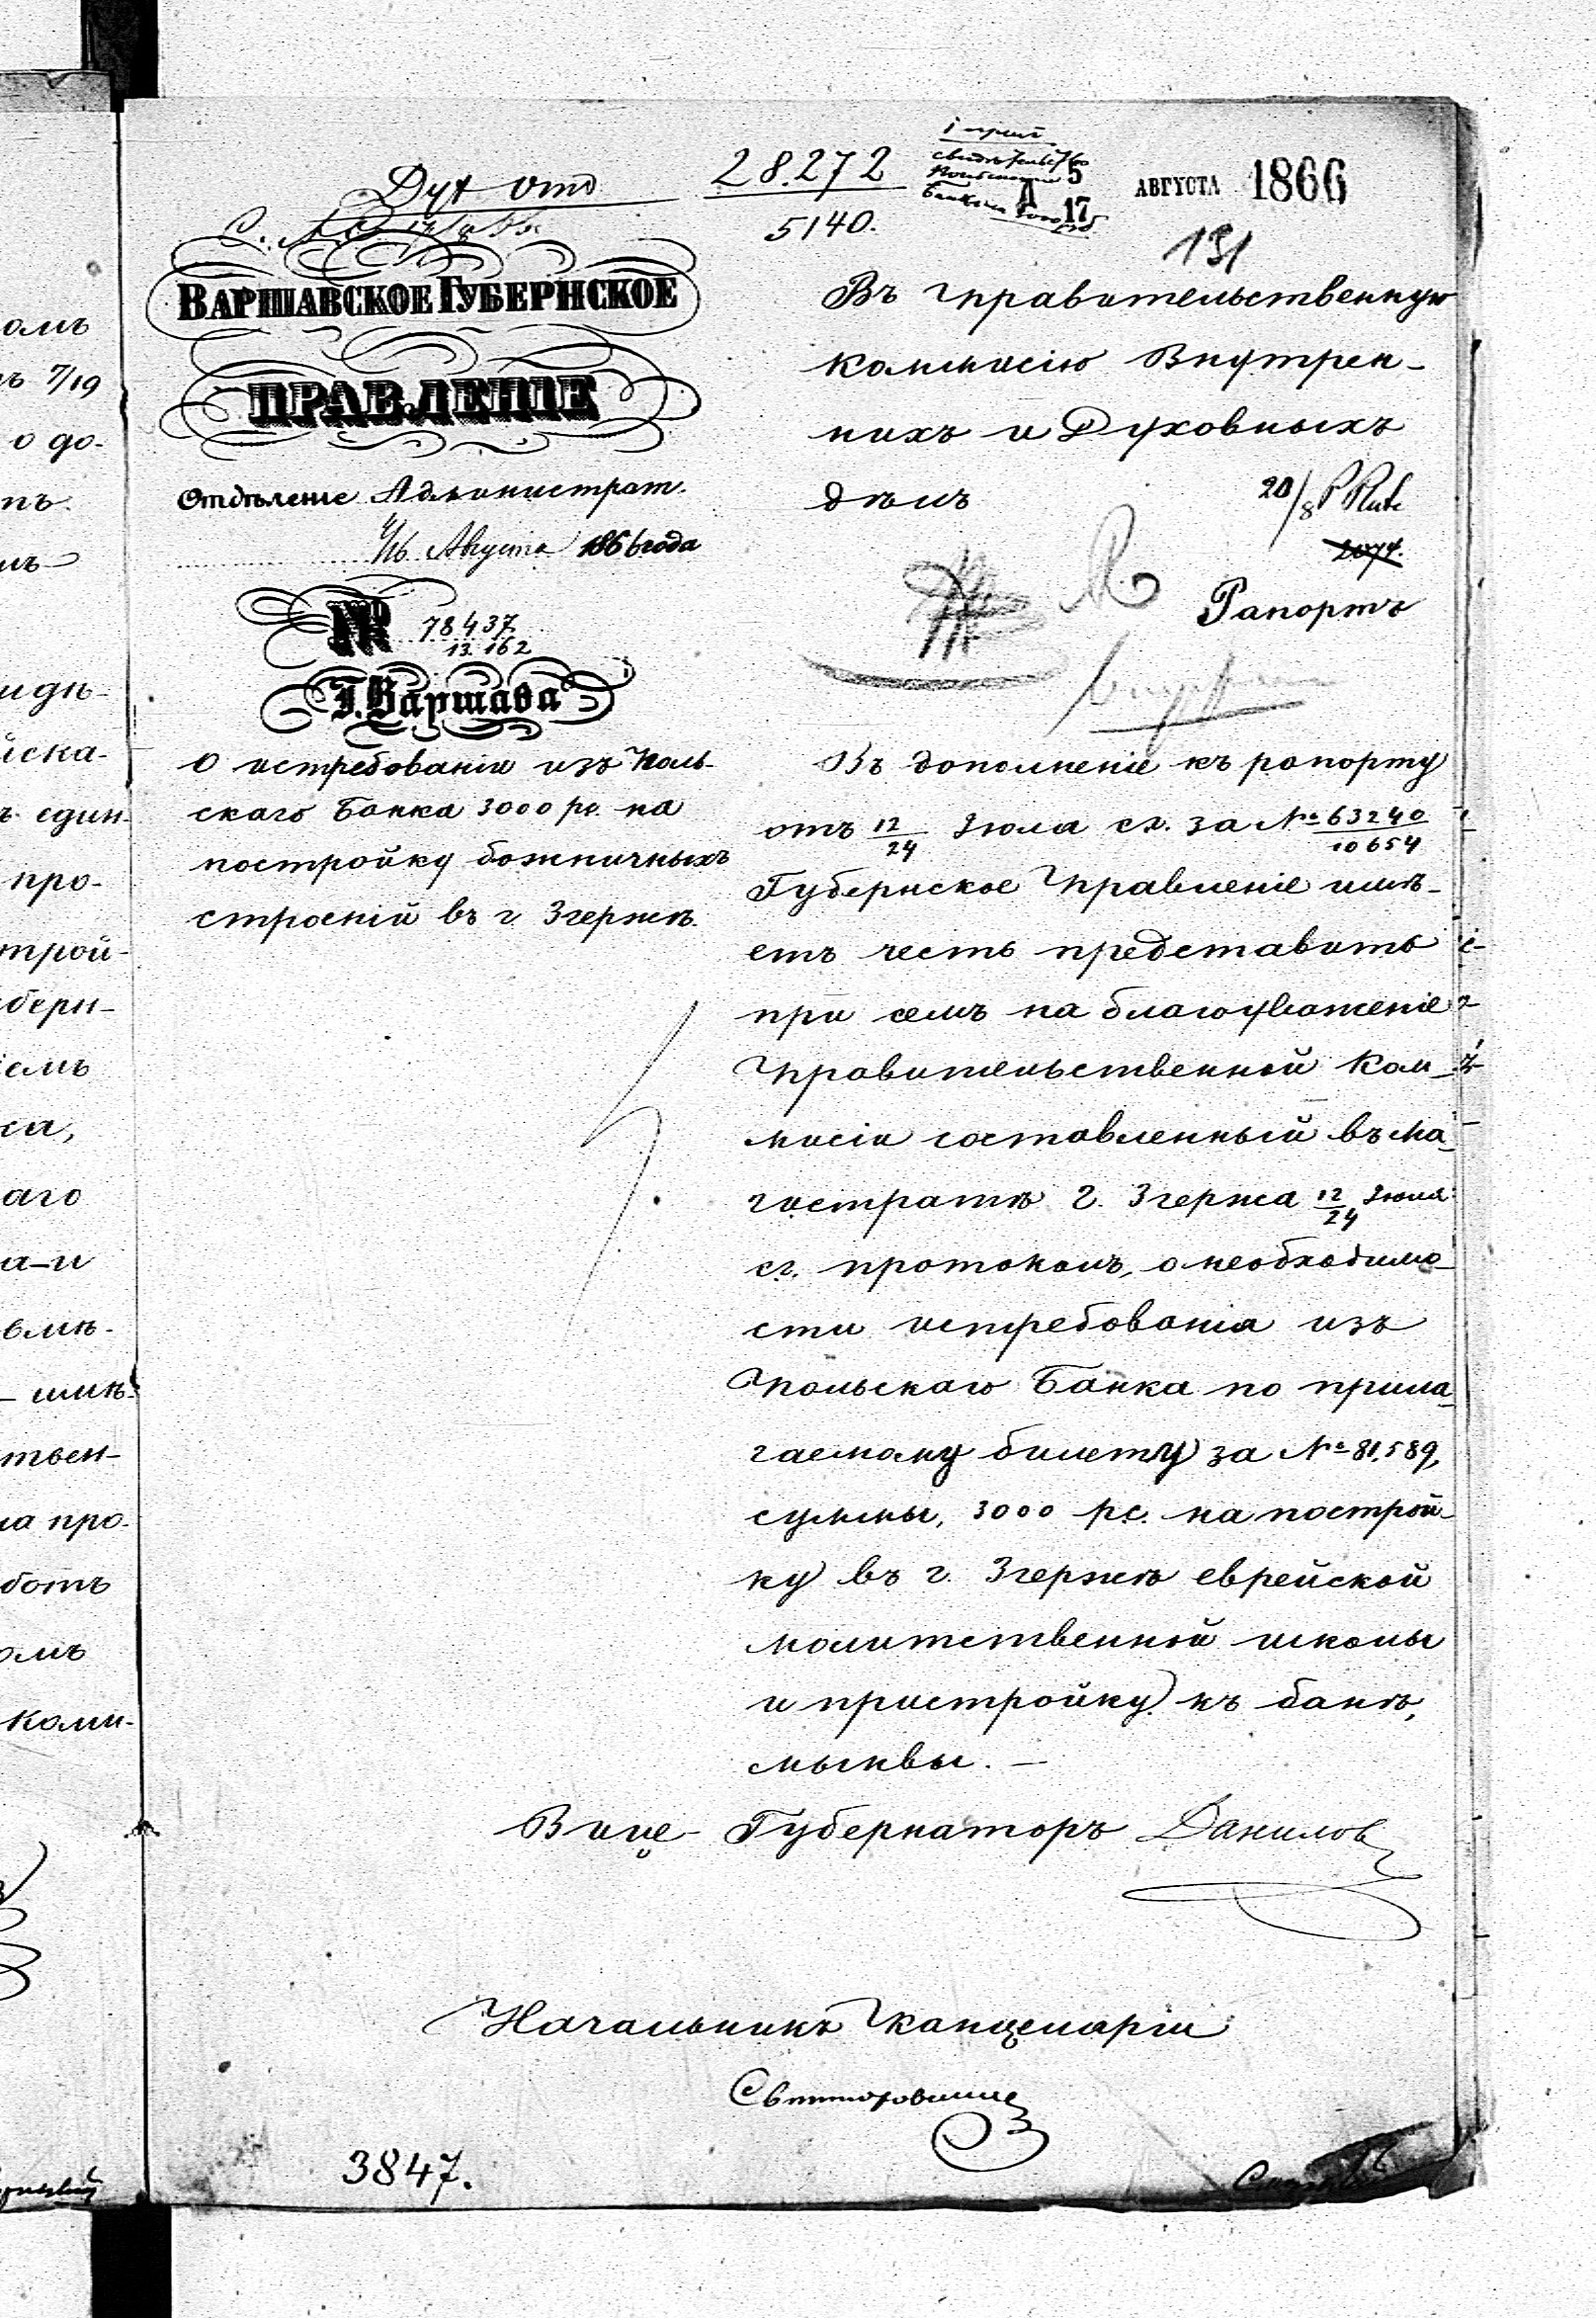 Дух отд
28.272
5140.
1 прил
свидѣтельство
Банка
5
Д 17
АВГУСТА 1866
131
ВАРШАВСКОЕ ГУБЕРНСКОЕ
ПРАВЛЕНІЕ
Отдѣленіе Администрат.
4/16 Августа 1866 года
№ 78437
13.162
Г. Варшава
О истребованіи изъ Поль-
скаго Банка 3000 рс. на
постройку божничныхъ
строеній въ г. Згержѣ.
Въ Правительственную
Коммисію Внутрен-
нихъ и Духовныхъ
дѣлъ
20/8
2074.
Рапортъ
Въ дополненіе къ рапорту
отъ 12/24 Іюля сг. за № 63240/10654
Губернское Правленіе имѣ-
етъ честь представить
при семъ на благоуваженіе
Правительственной Ком-
мисіи составленный въ Ма-
гистратѣ г. Згержа 12/24 Іюля
сг. протоколъ, о необходимо-
сти истребованія изъ
Польскаго Банка по прила-
гаемому билету за № 81,589,
суммы, 3000 рс. на построй-
ку въ г. Згержѣ еврейской
молитственной школы
и пристройку къ банѣ,
мыквы. —
Вице-Губернаторъ Данилов
Начальникъ Канцеляріи
3847.
омъ
7/19
о до-
идѣ-
йска-
един-
про-
трой-
берн-
емъ
са,
аго
а-и
имѣ-
твен-
на про-
ботъ
омъ
коми-